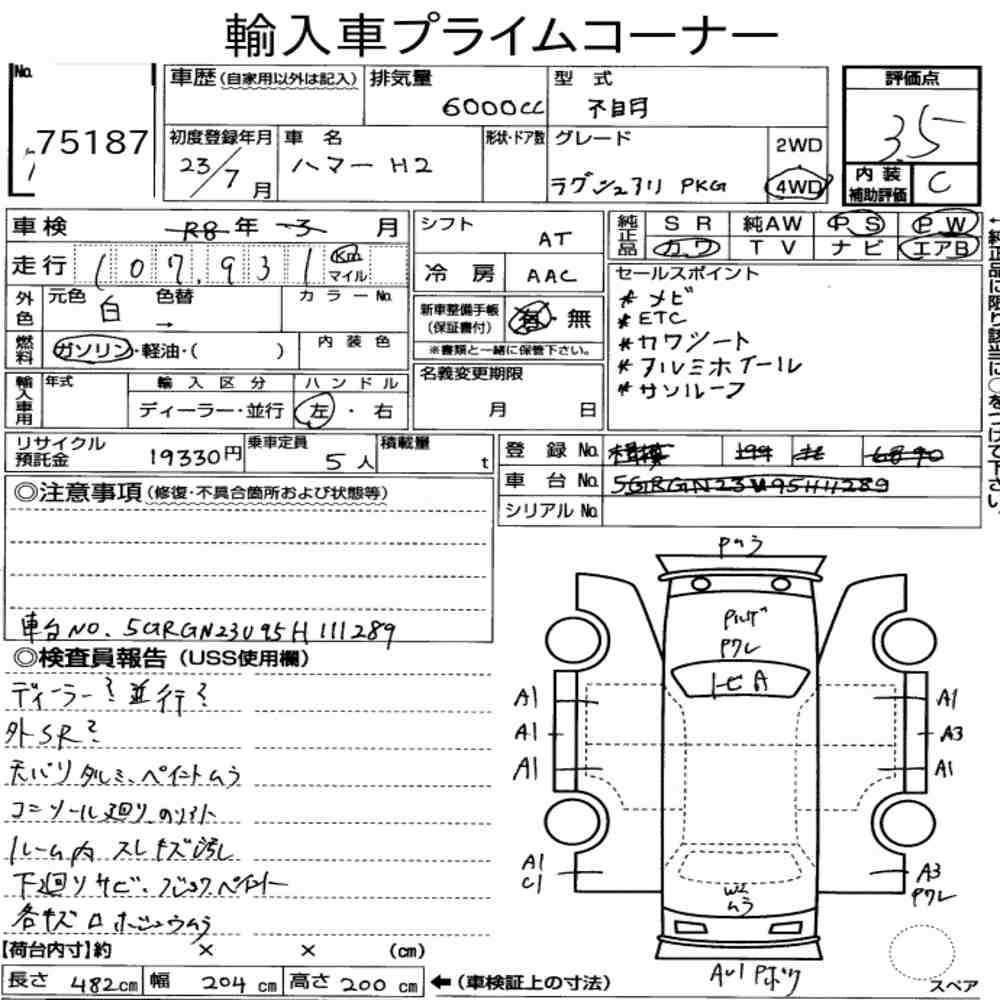 輸入車プライムコーナー
No.
75187
車歴（自家用以外は記入）
排気量
6000cc
型 式
不明
評価点
3.5
初度登録年月
23/7月
車 名
ハマー H2
形状・ドア数
グレード
ラグジュアリ PKG
2WD
4WD
内装補助評価
C
車検
R8年 3月
走行
107,931
Km
マイル
シフト
AT
冷 房
AAC
純正品
SR 純AW PS PW
カワ TV ナビ エアB
外色
元色
白
色替
→
カラーNo.
燃料
ガソリン・軽油・( )
内装色
新車整備手帳
（保証書付）
有・無
※書類と一緒に保管下さい。
セールスポイント
* ナビ
* ETC
* カワシート
* アルミホイール
* サンルーフ
←純正品に限り該当に○をつけて下さい。
輸入車用
年式
輸入区分
ディーラー・並行
ハンドル
左・右
名義変更期限
月 日
リサイクル預託金
19330円
乗車定員
5人
積載量
t
登 録 No.
車 台 No.
5GRGN23U95H11289
シリアル No.
◎注意事項（修復・不具合箇所および状態等）
車台NO. 5GRGN23U95H111289
◎検査員報告（USS使用欄）
ディーラー? 並行?
外SR?
天バリタルミ、ペイントムラ
コンソール廻り
ルーム内 スレキズ汚レ
下廻リサビ、
各キズ
【荷台内寸】約 × × (cm)
長さ 482cm 幅 204cm 高さ 200cm ←（車検証上の寸法）
Pムラ
Pワレ
トビA
A1
A1
A1
A1
A3
A1
A1
C1
A3
Pワレ
W2
ムラ
スペア